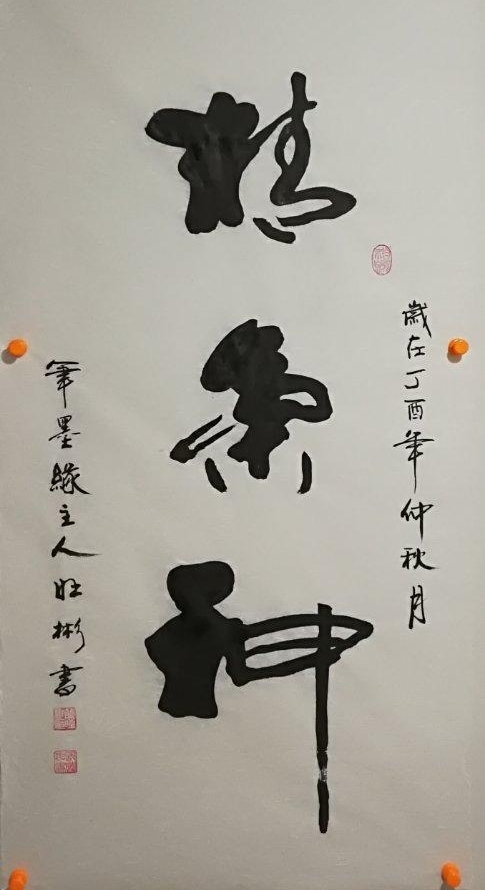 歲在丁酉年仲秋月
精氣神
筆墨緣主人旺彬書